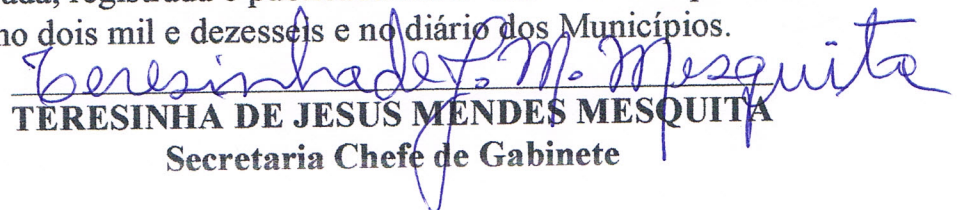 registrada e
no dois mil e dezesseis e no diário dos Municípios.
Teresinha de J. M. Mesquita
TERESINHA DE JESUS MENDES MESQUITA
Secretaria Chefe de Gabinete